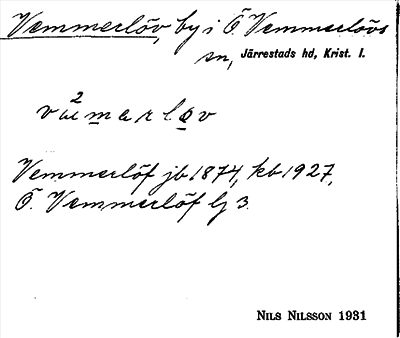 Vemmerlöv, by i Ö. Vemmerlövs
sn, Järrestads hd, Krist. l.
væ²marlov
Vemmerlöf jb 1874, kb 1927,
Ö. Vemmerlöf lj 3.
NILS NILSSON 1931